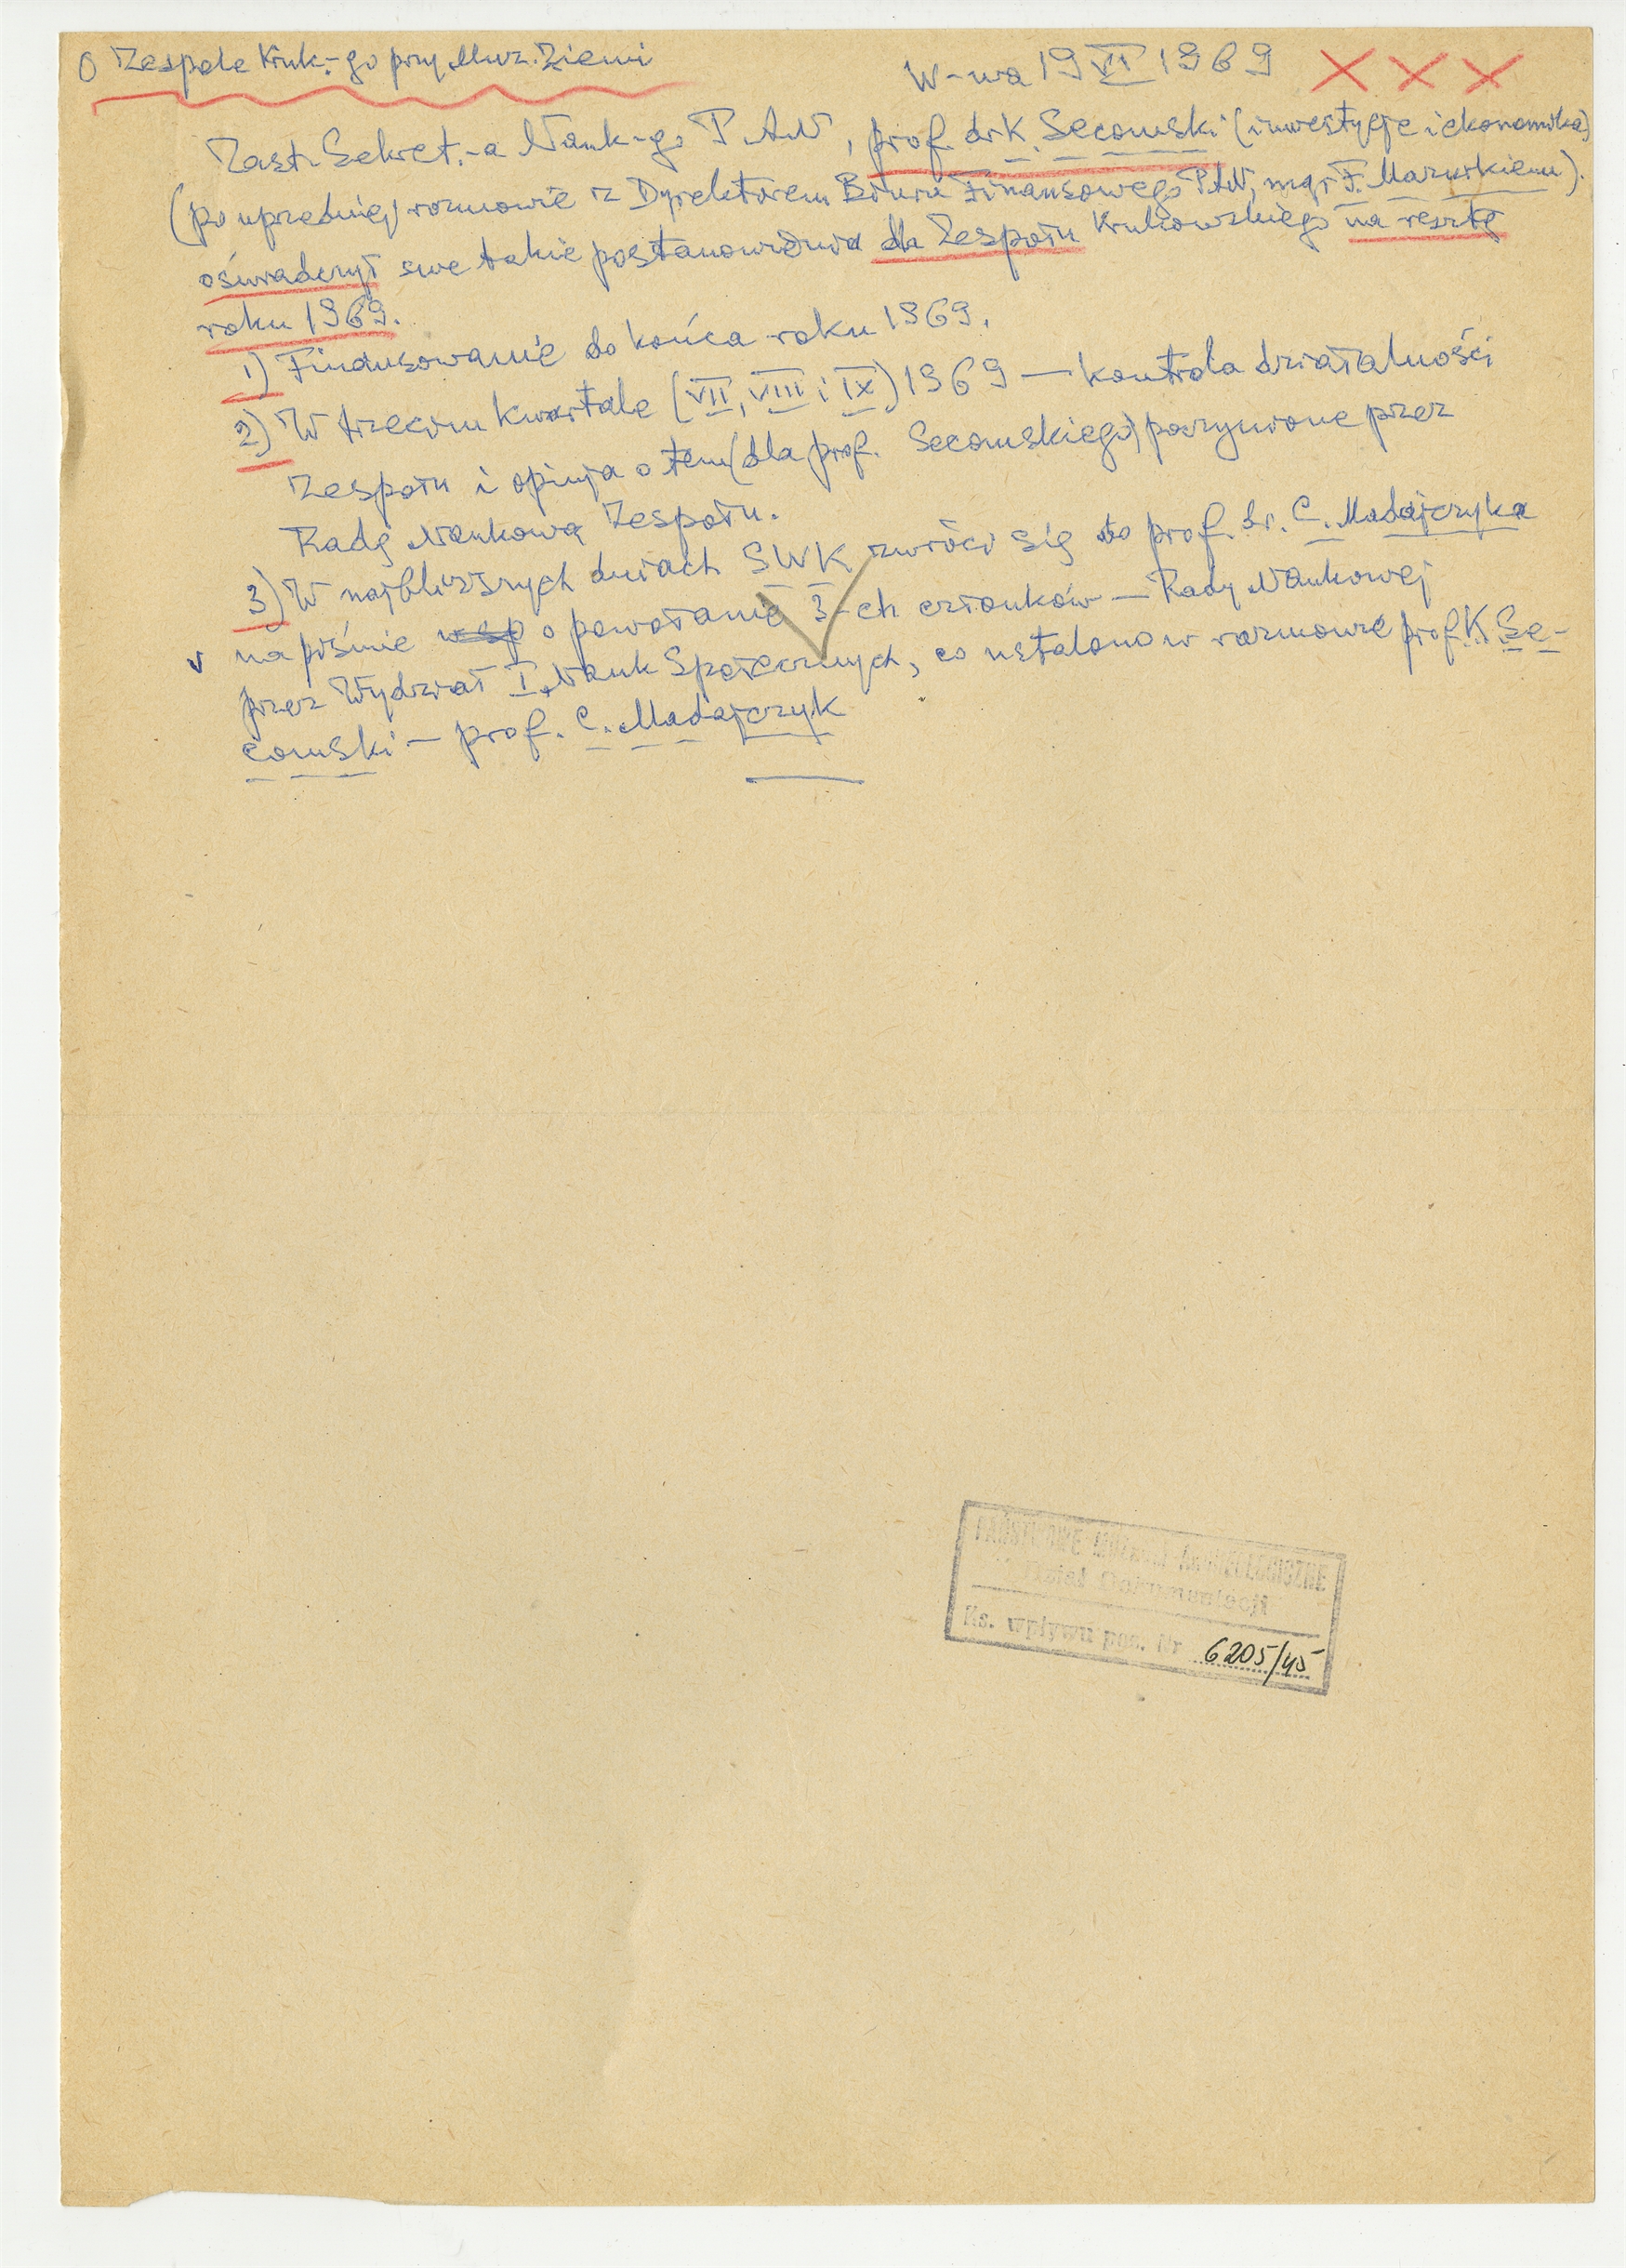 O Zespole Kruk.-go przy Muz. Ziemi
W-wa 19 VI 1969 XXX
Zast. Sekret.-a Nauk-go PAN, prof. dr K. Secomski (inwestycje i ekonomika)
(po uprzedniej rozmowie z Dyrektorem Biura Finansowego PAN, mgr F. Mazurkiem).
oświadczył swe takie postanowienia dla Zespołu Krukowskiego na resztę
roku 1969.
1) Finansowanie do końca roku 1969.
2) W trzecim kwartale (VII, VIII i IX) 1969 — kontrola działalności
Zespołu i opinja o tem (dla prof. Secomskiego) poczynione przez
Radę Naukową Zespołu.
3) W najbliższych dniach SWK zwróci się do prof. dr. C. Madajczyka
v na piśmie wsp o powołanie 3-ch członków — Rady Naukowej
przez Wydział I, Nauk Społecznych, co ustalono w rozmowie prof. K. Se-
comski — prof. C. Madajczyk
PAŃSTWOWE MUZEUM ARCHEOLOGICZNE
Dział Dokumentacji
Ks. wpływu poz. Nr 6205/45